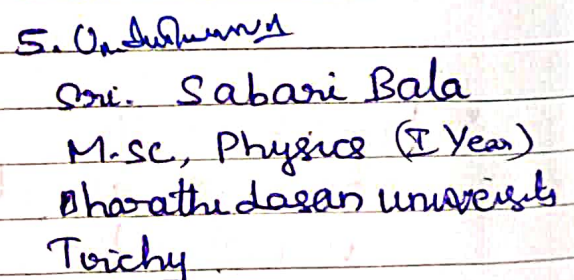 5.
Sri. Sabari Bala
M.sc, Physics (I Year)
Bharathidasan university
Trichy